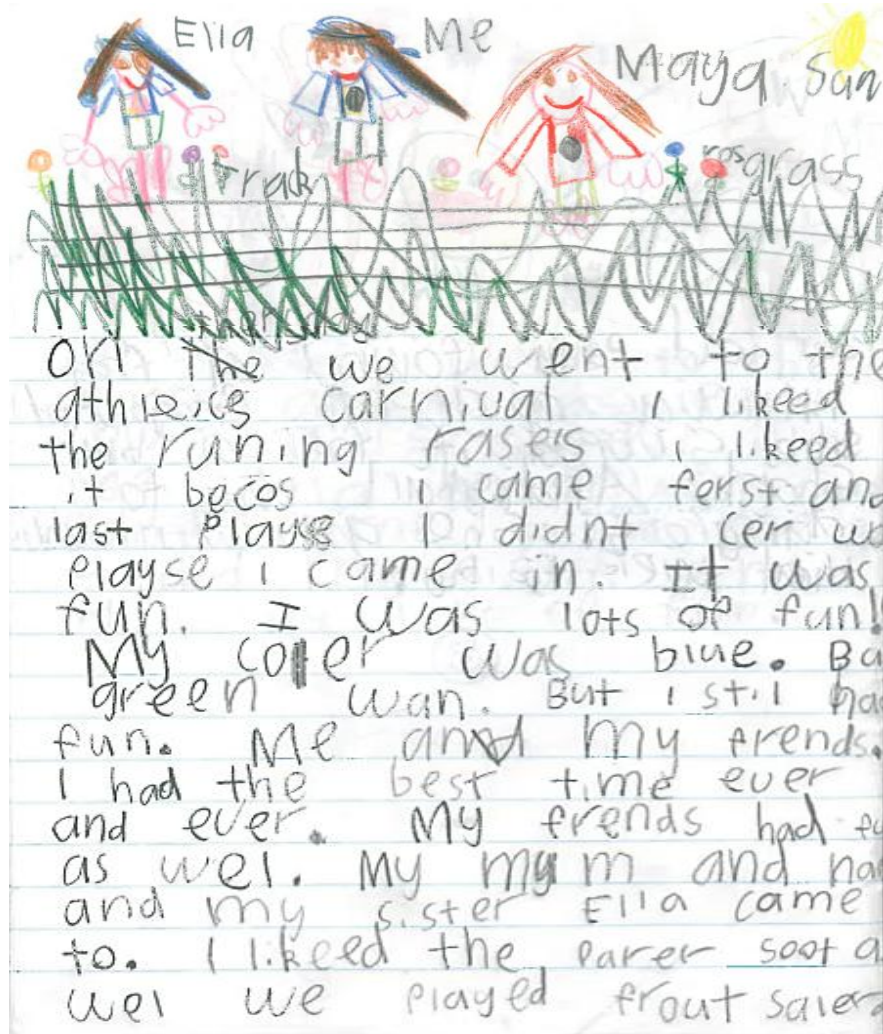 Ella Me Maya Sun
Track ros grass
thersday
On the we went to the
athleics carnival I likeed
the runing rasers I likeed
it becos I came ferst and
last playse I didnt cer
playse I came in. It was
fun. I was lots of fun!
My coler was blue.
green wan. But I stil had
fun. Me and my frends.
I had the best time ever
and ever. My frends had
as wel. My mum and
and my sister Ella came
to. I likeed the parer soot
wel we played frout